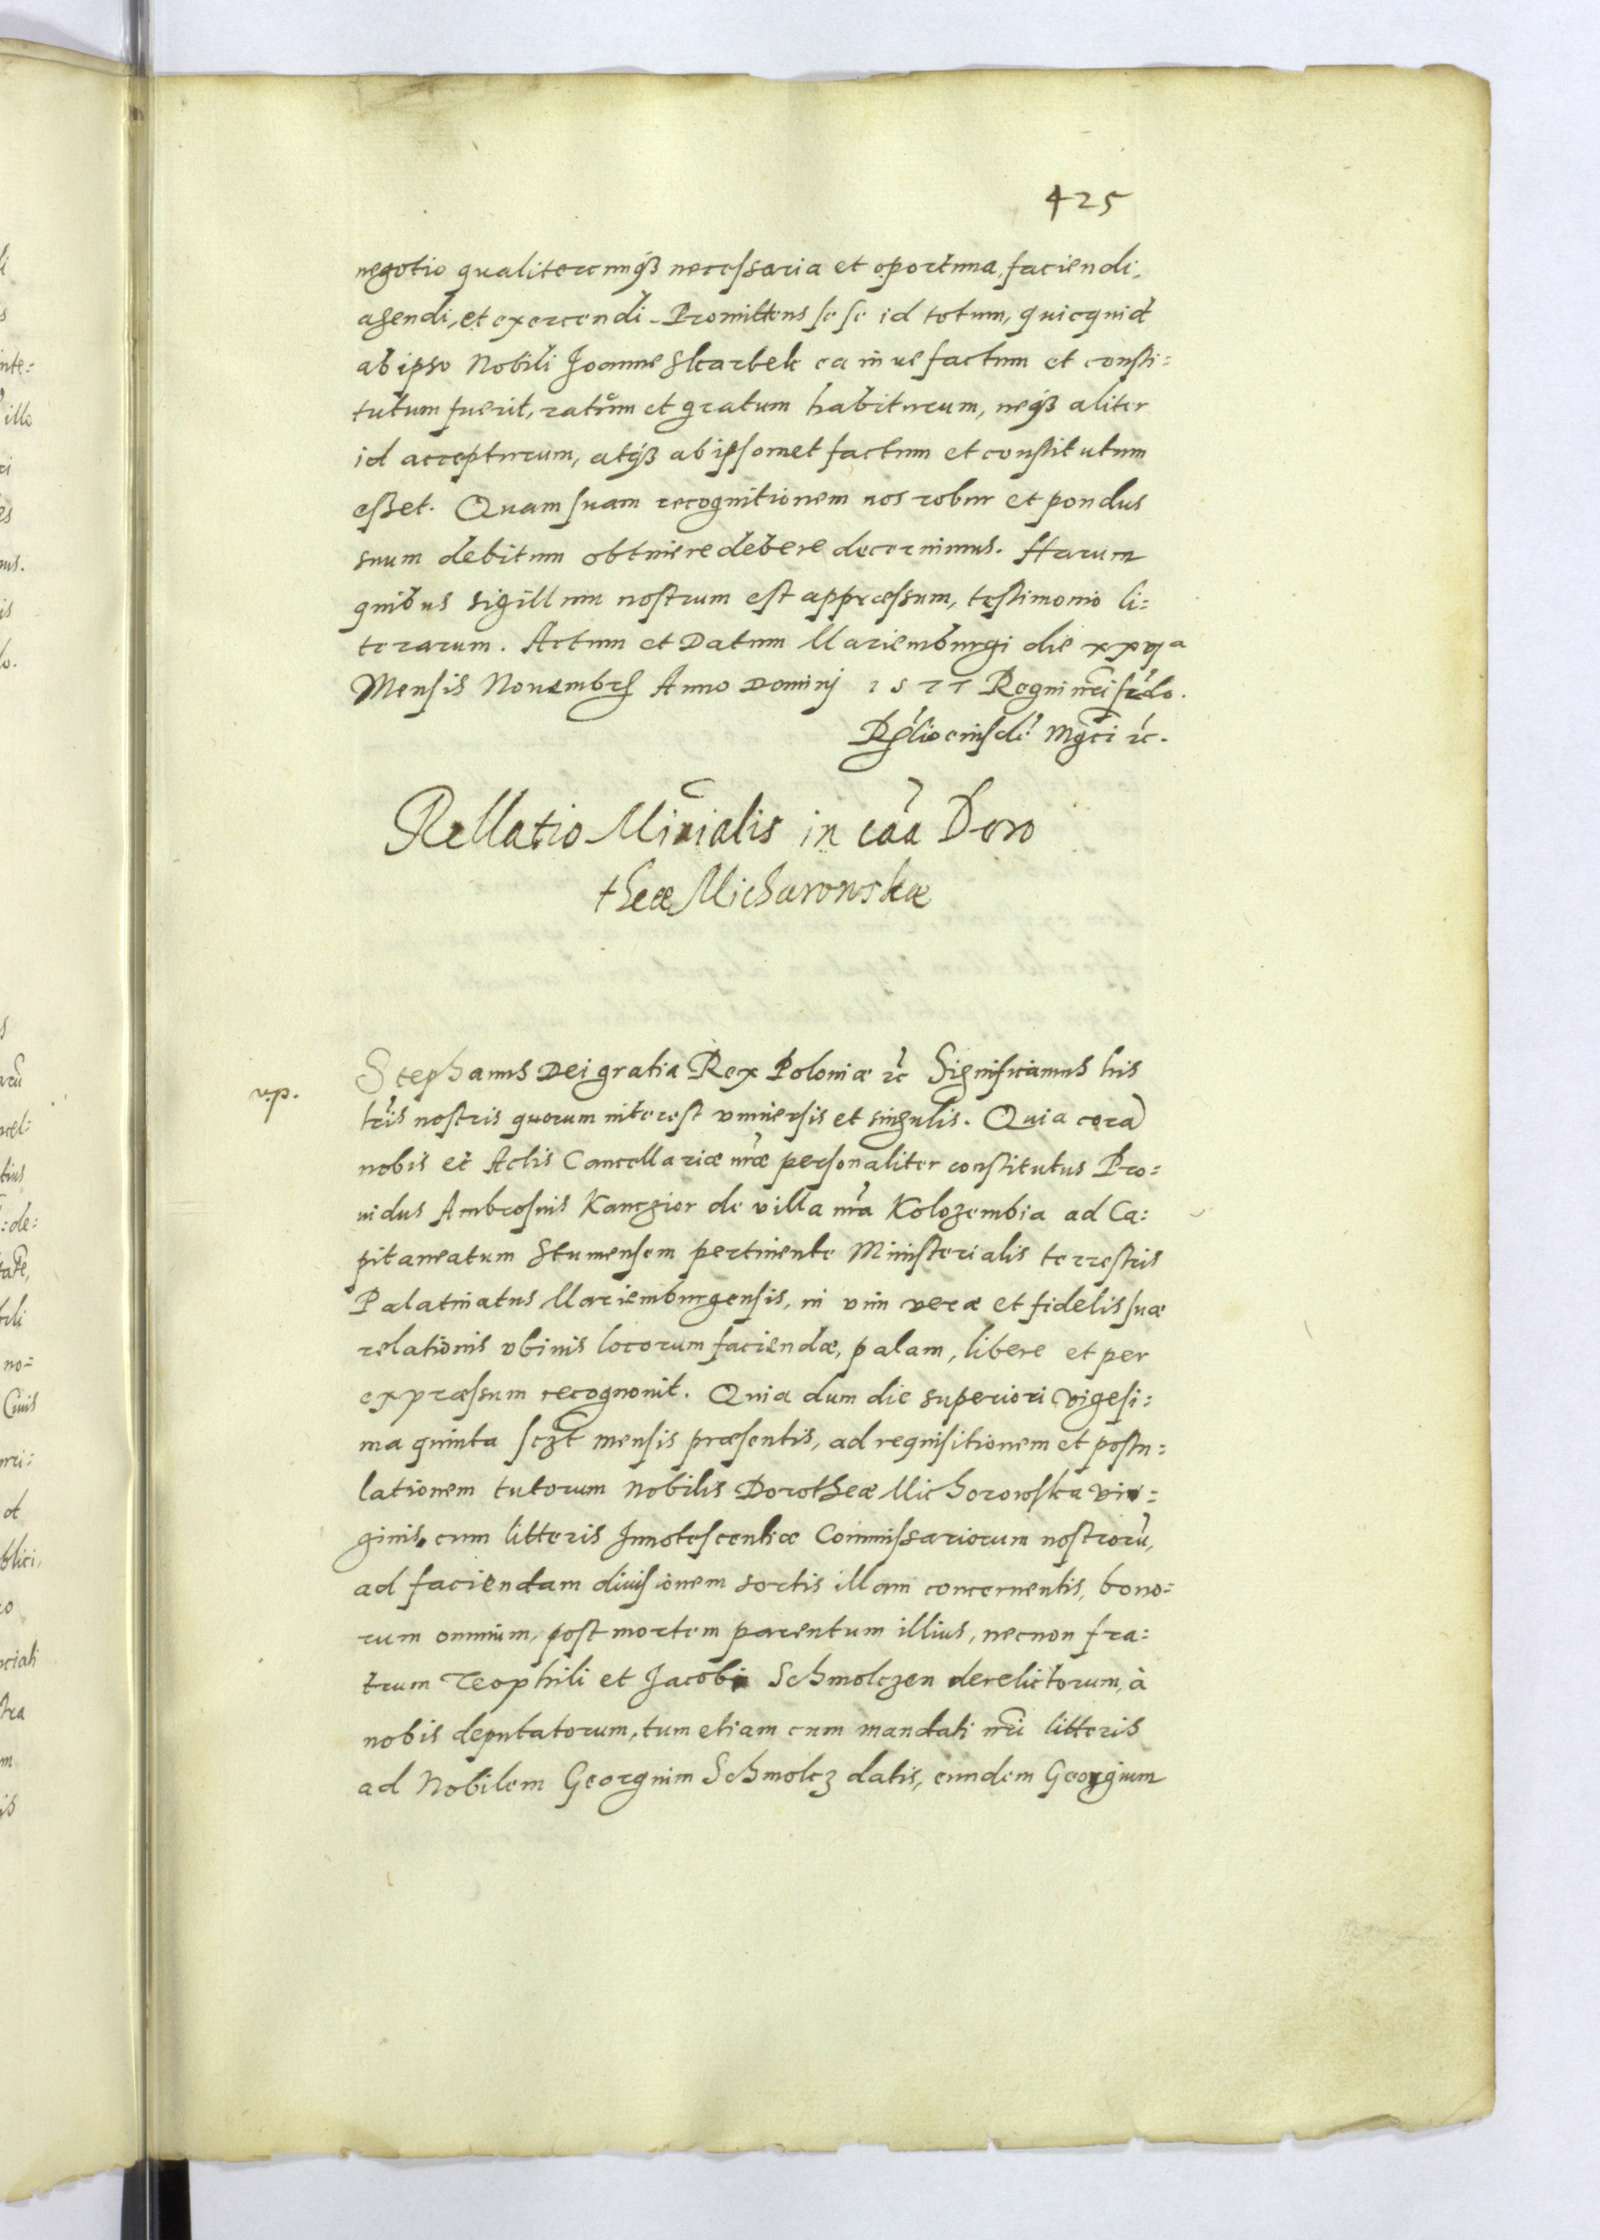 425
negotio qualitercunqꝫ necessaria et oportuna, faciendi,
agendi, et exercendi. Promittens se se id totum, quicquid
ab ipso Nobili Joanne Skarbek ea in re factum et consti:
tutum fuerit, ratum et gratum habiturum, neqꝫ aliter
id accepturum, atqꝫ ab ipsomet factum et constitutum
esset. Quam suam recognitionem nos robur et pondus
suum debitum obtinere debere decernimus. Harum
quibus sigillum nostrum est appræssum, testimonio li:
terarum. Actum et Datum Mariemburgi die xxvj a
Mensis Novembr Anno Dominj 1577 Regni nri scdo.
Rlio eiusde Mgci rc.
Rellatio Minialis in caa Doro
theæ Micharowskæ
v.p.
Stephanus Dei gratia Rex Poloniæ rc Significamus his
lris nostris quorum interest vniuersis et singulis. Quia cora
nobis et Actis Cancellariæ nræ personaliter constitutus Pro:
uidus Ambrosius Kanczior de villa nra Kolozembia ad Ca:
pitaneatum Stumensem pertinente Ministerialis terrestris
Palatinatus Mariemburgensis, in vim veræ et fidelis suæ
relationis vbiuis locorum faciendæ, palam, libere et per
expræssum recognouit. Quia dum die superiori vigesi:
ma quinta sczt mensis præsentis, ad requisitionem et postu:
lationem tutorum Nobilis Dorotheæ Michorowska vir:
ginis, cum litteris Innotescentiæ Commissariorum nostroru,
ad faciendam diuisionem sortis illam concernentis, bono:
rum omnium, post mortem parentum illius, necnon fra:
trum Teophili et Jacobi Schmolczen derelictorum, à
nobis deputatorum, tum etiam cum mandati nri litteris
ad Nobilem Georgium Schmolcz datis, eundem Georgium